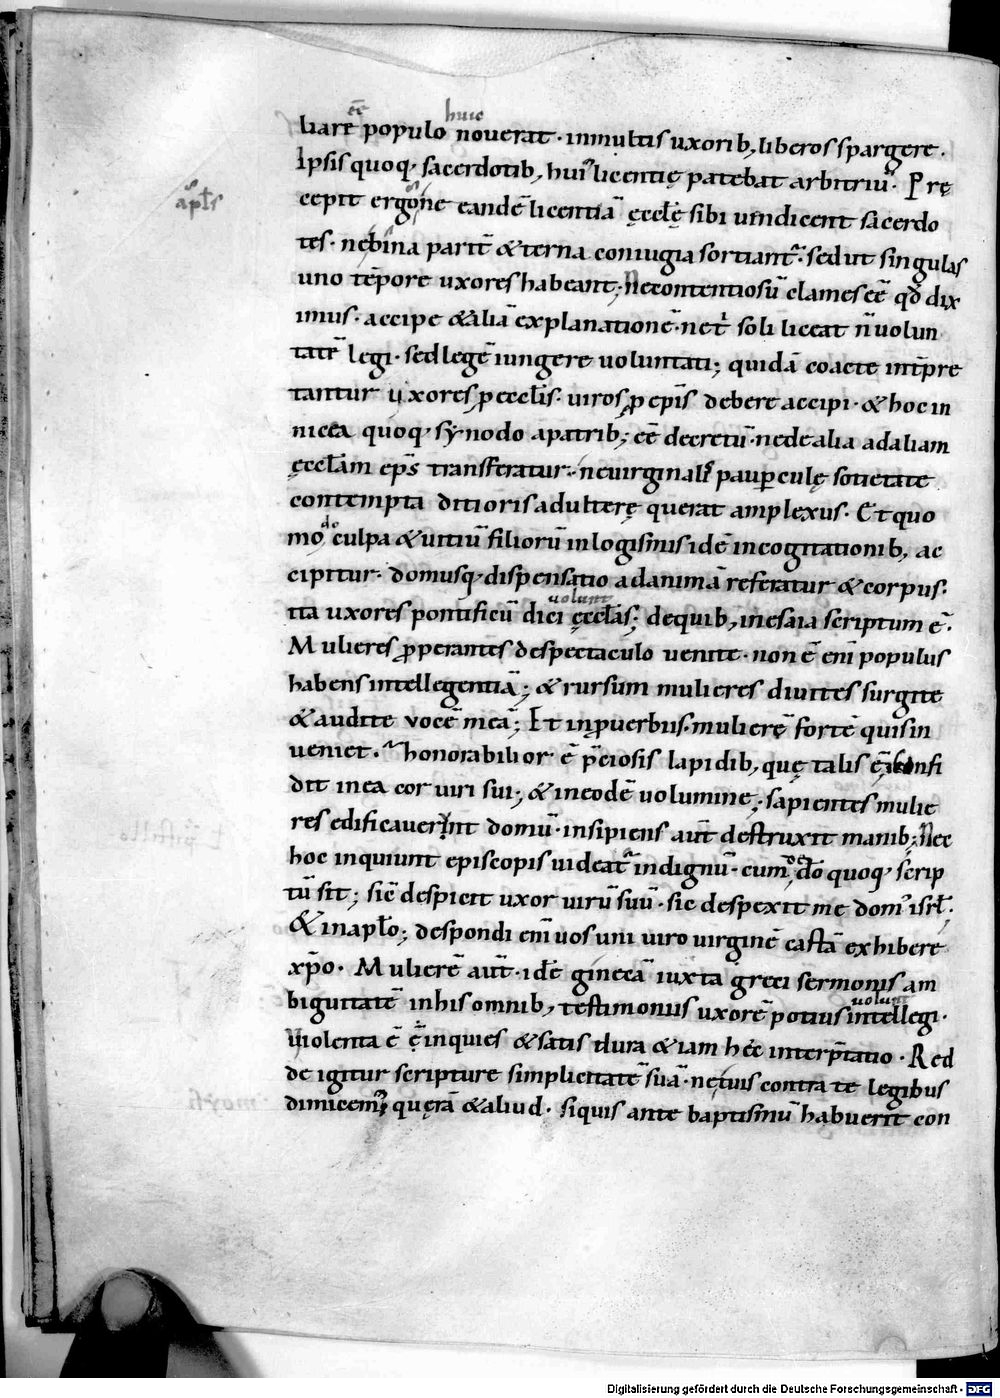 ee᷎ huic
liarē populo noverat · inmultis uxorib; liberos spargere ·
Ipsis quoq; sacerdotib; hui᷒ licentię patebat arbitriū · Pre᷎
cepit ergo ne eandē licentiā ęcclę sibi uindicent sacerdo
apl̄s
tes · nebina parit̄ & terna coniugia sortiant᷑ · sed ut singulas
uno tēpore uxores habeant; Nec contentiosū clames eē qd̄ dix
imus · accipe & aliā explanationē · net̄ soli liceat n̄ uolun
tatē legi · sed legē iungere uoluntati; quidā coacte int̄pre
tantur uxores p eccl̄is · uiros p ep̄is debere accipi · & hoc in
nicea quoq; synodo apatrib; eē decretū · nede alia ad aliam
ęccl̄am ep̄s transferatur · ne uirginalis paup̱culę societate
contempta ditioris adulterę querat amplexus · Et quo
modo culpa & uitiū filiorū inlogismis idē incogitationib; ac
cipitur · domusq; dispensatio ad animā referatur & corpus ·
volunt
ita uxores pontificū dici ęccl̄as; de quib; inesaia scriptum ē ·
Mulieres p̱perantes de spectaculo uenite · non ē enī populus
habens intellegentiā; & rursum mulieres diuites surgite
& audite vocē meā; Et inp̱uerbiis · mulierē fortē quis in
ueniet · honorabilior ē p̄ciosis lapidib; quę talis ē; confi
dit inea cor uiri sui; & ineodē uolumine; sapientes mulie
res edificaverunt domū · insipiens aut̄ destruxit manib; Nec
hoc inquiunt episcopis uideat᷑ indignū · cum de dō quoq; scrip
tū sit; sic̄ despicit uxor uirū suū · sic despexit me dom᷒ isrl̄ ·
& inapl̄o; despondi enī uos uni uiro uirginē castā exhibere
xp̄o · Mulierē aut̄ · idē ginecā iuxta greci sermonis am
biguitatē inhis omnib; testimoniis uxorē potius intellegi ·
volunt
Violenta ē inquies & satis dura & iam hęc interp̄tatio · Red
de igitur scripture simplicitatē suā · ne tuis contra te legibus
dimicem᷒ quęrā & aliud · siquis ante baptismū habuerit con